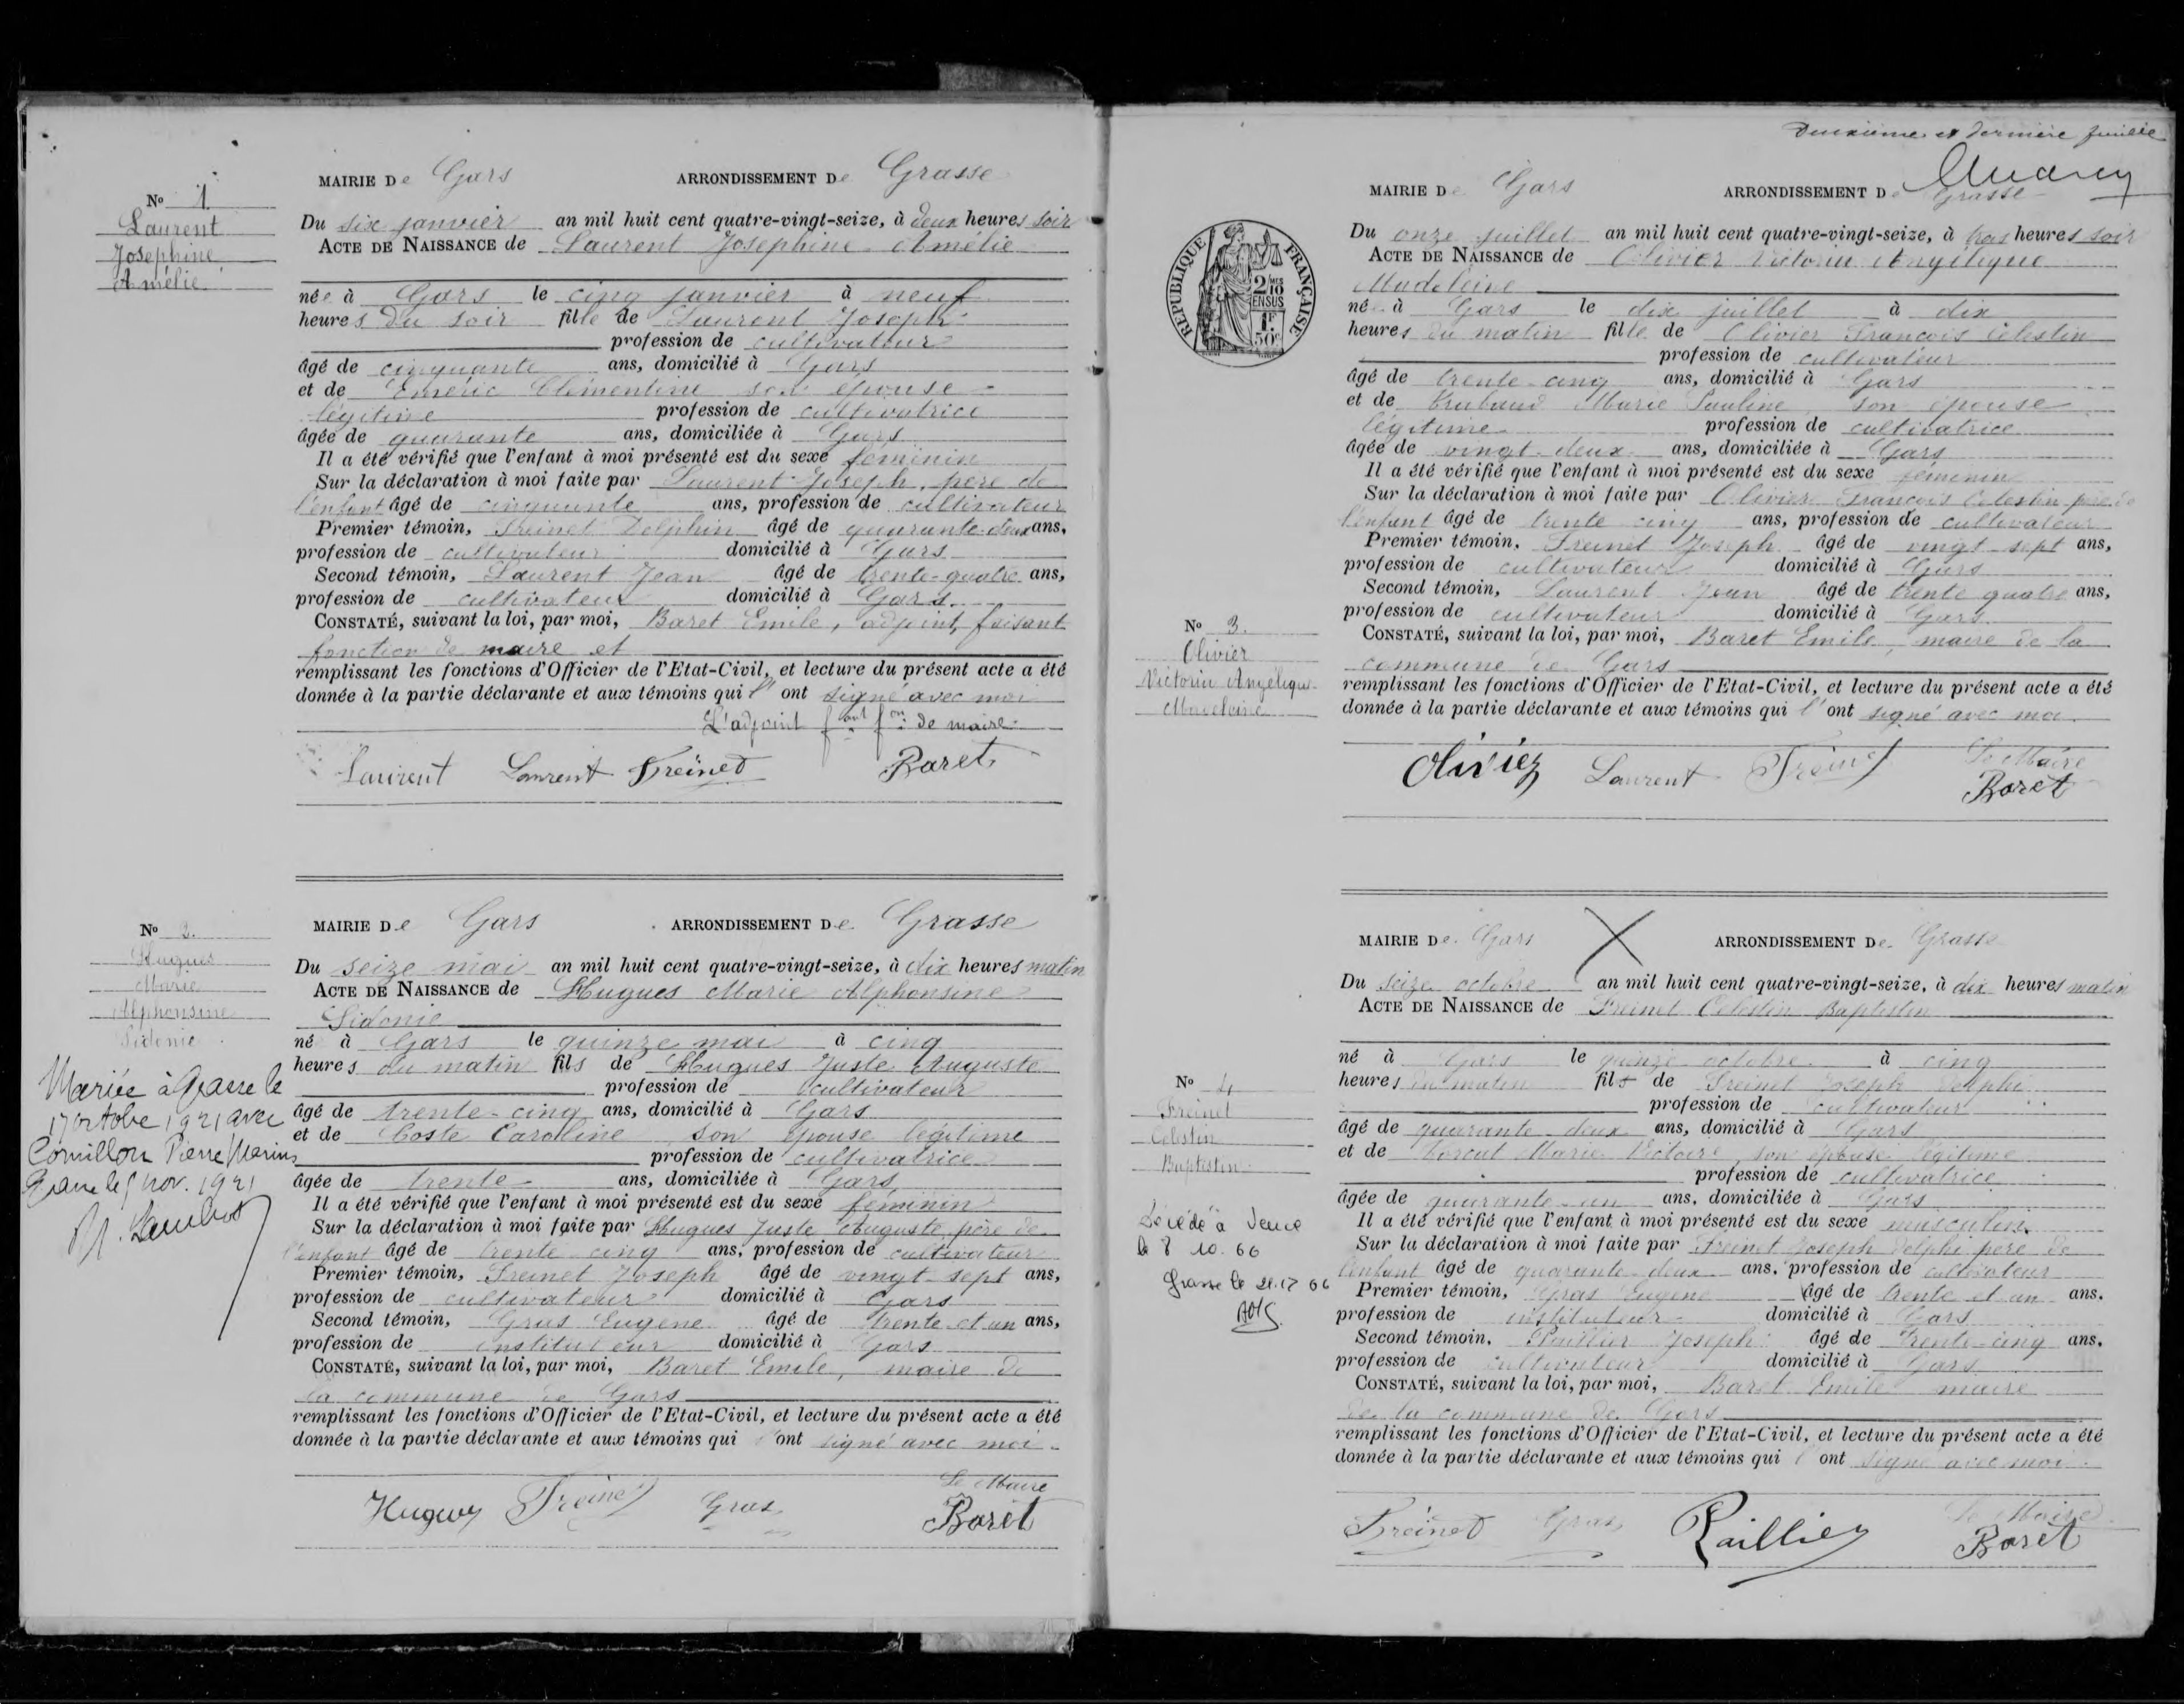 N° 1
Laurent
Josephine
Amélie
MAIRIE De Gars ARRONDISSEMENT De Grasse
Du six janvier an mil huit cent quatre-vingt-seize, à deux heures soir
ACTE DE NAISSANCE de Laurent Josephine Amélie
née à Gars le cinq janvier à neuf
heures du soir fille de Laurent Joseph
profession de cultivateur
âgé de cinquante ans, domicilié à Gars
et de Emeric Clémentine son épouse
légitime profession de cultivatrice
âgée de quarante ans, domiciliée à Gars
Il a été vérifié que l'enfant à moi présenté est du sexe féminin
Sur la déclaration à moi faite par Laurent Joseph, père de
l'enfant âgé de cinquante ans, profession de cultivateur
Premier témoin, Freinet Delphin âgé de quarante-deux ans,
profession de cultivateur domicilié à Gars
Second témoin, Laurent Jean âgé de trente-quatre ans,
profession de cultivateur domicilié à Gars
CONSTATÉ, suivant la loi, par moi, Baret Emile, adjoint, faisant
fonction de maire et
remplissant les fonctions d'Officier de l'Etat-Civil, et lecture du présent acte a été
donnée à la partie déclarante et aux témoins qui l'ont signé avec moi
L'adjoint f.ant f.on de maire
Laurent Laurent Freinet Baret
N° 2.
Hugues
Marie
Alphonsine
Sidonie
Mariée à Grasse le
17 octobre 1921 avec
Cornillon Pierre Marius
Grasse le 5 nov. 1921
MAIRIE De Gars ARRONDISSEMENT De Grasse
Du seize mai an mil huit cent quatre-vingt-seize, à dix heures matin
ACTE DE NAISSANCE de Hugues Marie Alphonsine
Sidonie
né à Gars le quinze mai à cinq
heures du matin fils de Hugues Juste Auguste
profession de cultivateur
âgé de trente-cinq ans, domicilié à Gars
et de Coste Caroline son épouse légitime
profession de cultivatrice
âgée de trente ans, domiciliée à Gars
Il a été vérifié que l'enfant à moi présenté est du sexe féminin
Sur la déclaration à moi faite par Hugues Juste Auguste, père de
l'enfant âgé de trente cinq ans, profession de cultivateur
Premier témoin, Freinet Joseph âgé de vingt-sept ans,
profession de cultivateur domicilié à Gars
Second témoin, Gras Eugene âgé de trente et un ans,
profession de instituteur domicilié à Gars
CONSTATÉ, suivant la loi, par moi, Baret Emile, maire de
la commune de Gars
remplissant les fonctions d'Officier de l'Etat-Civil, et lecture du présent acte a été
donnée à la partie déclarante et aux témoins qui l'ont signé avec moi.
Le Maire
Hugues Freinet Gras Baret
Deuxième et dernière feuille
MAIRIE De Gars ARRONDISSEMENT De Grasse
RÉPUBLIQUE FRANÇAISE
2/10
EN SUS
1F
50c
Du onze juillet an mil huit cent quatre-vingt-seize, à trois heures soir
ACTE DE NAISSANCE de Olivier Victorin Angélique
Madeleine
née à Gars le dix juillet à dix
heures du matin fille de Olivier François Célestin
profession de cultivateur
âgé de trente-cinq ans, domicilié à Gars
et de Trubaud Marie Pauline son épouse
légitime profession de cultivatrice
âgée de vingt-deux ans, domiciliée à Gars
Il a été vérifié que l'enfant à moi présenté est du sexe féminin
Sur la déclaration à moi faite par Olivier François Celestin père de
l'enfant âgé de trente cinq ans, profession de cultivateur
Premier témoin, Freinet Joseph âgé de vingt-sept ans,
profession de cultivateur domicilié à Gars
Second témoin, Laurent Jean âgé de trente quatre ans,
profession de cultivateur domicilié à Gars
CONSTATÉ, suivant la loi, par moi, Baret Emile, maire de la
commune de Gars
remplissant les fonctions d'Officier de l'Etat-Civil, et lecture du présent acte a été
donnée à la partie déclarante et aux témoins qui l'ont signé avec moi.
N° 3.
Olivier
Victorin Angélique
Madeleine
Le Maire
Olivier Laurent Freinet Baret
MAIRIE De Gars ARRONDISSEMENT De Grasse
Du seize octobre an mil huit cent quatre-vingt-seize, à dix heures matin
ACTE DE NAISSANCE de Freinet Célestin Baptistin
né à Gars le quinze octobre à cinq
heures du matin fils de Freinet Joseph Delphi
profession de cultivateur
âgé de quarante-deux ans, domicilié à Gars
et de Torcat Marie Victoire, son épouse légitime
profession de cultivatrice
âgée de quarante-un ans, domiciliée à Gars
Il a été vérifié que l'enfant à moi présenté est du sexe masculin
Sur la déclaration à moi faite par Freinet Joseph Delphi père de
l'enfant âgé de quarante-deux ans, profession de cultivateur
Premier témoin, Gras Eugene âgé de trente et un ans.
profession de instituteur domicilié à Gars
Second témoin. Raillier Joseph âgé de trente-cinq ans.
profession de cultivateur domicilié à Gars
CONSTATÉ, suivant la loi, par moi, Baret Emile maire
de la commune de Gars
remplissant les fonctions d'Officier de l'Etat-Civil, et lecture du présent acte a été
donnée à la partie déclarante et aux témoins qui l'ont signé avec moi.
N° 4
Freinet
Célestin
Baptistin
Décédé à Vence
le 8 10. 66
Grasse le 21.12 66
Le Maire
Freinet Gras Raillier Baret